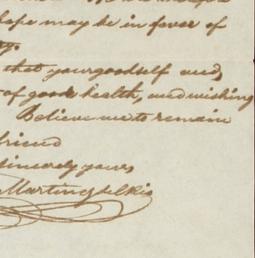 hope may be in favor of
that yourgoodself and
of good health, and wishing
Believe me to remain
friend
sincerely yours
Martin